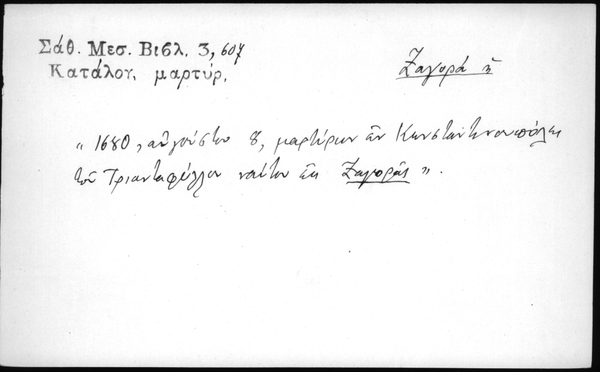 Σάθ. Μεσ. Βιβλ. 3, 607
Κατάλογ. μαρτύρ.
Ζαγορά ἡ
„ 1680, αὐγούστου 8, μαρτύριον ἐν Κωνσταντινουπόλει
τοῦ Τριανταφύλλου ναύτου ἐκ Ζαγορᾶς ".